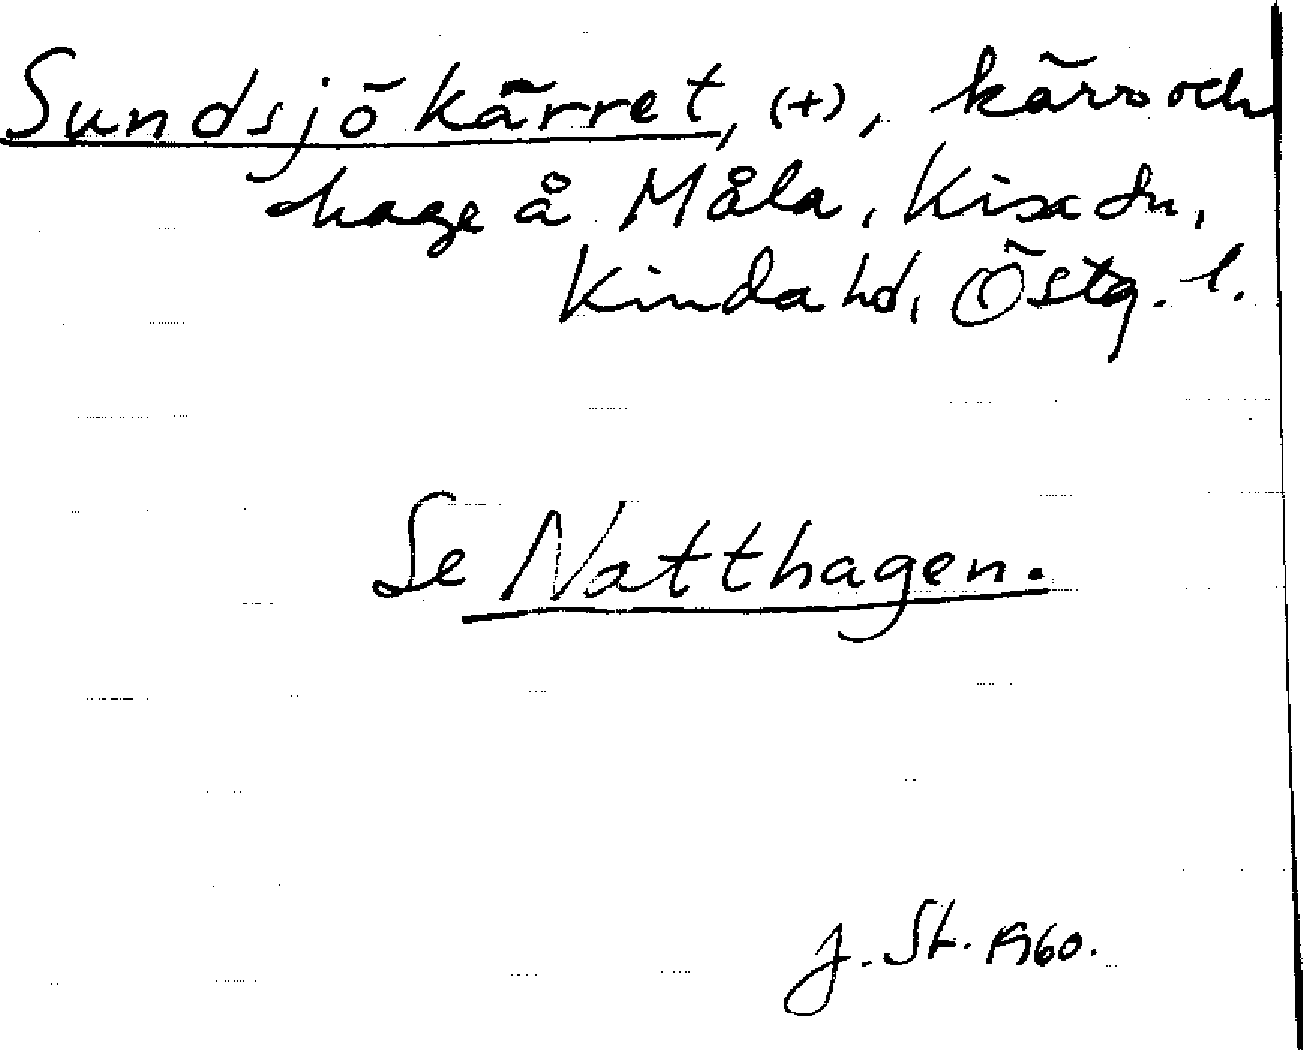 Sundsjökärret, (+), kärr och
hage å Måla, Kisa sn,
Kinda hd, Östg. l.
Se Natthagen.
J. St. 1960.